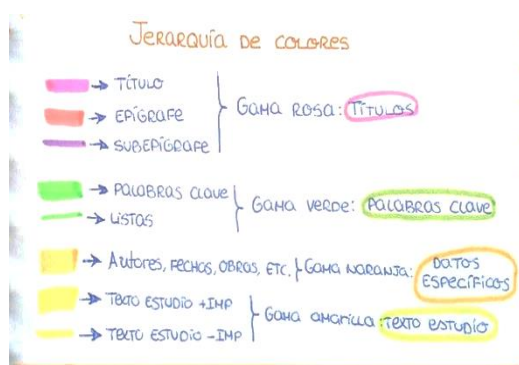 JERARQUÍA DE COLORES
→ TÍTULO
→ EPÍGRAFE
→ SUBEPÍGRAFE
GAMA ROSA: TÍTULOS
→ PALABRAS CLAVE
→ LISTAS
GAMA VERDE: PALABRAS CLAVE
→ AUTORES, FECHAS, OBRAS, ETC. GAMA NARANJA: DATOS
ESPECÍFICOS
→ TEXTO ESTUDIO +IMP
→ TEXTO ESTUDIO -IMP
GAMA AMARILLA: TEXTO ESTUDIO